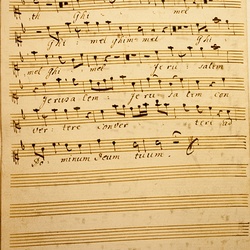 th ghi mel
ghi mel ghi mel ghi
mel ghi mel Jerusalem
Jerusalem Jerusalem con
vertere convertere ad
Dominum Deum tuum.